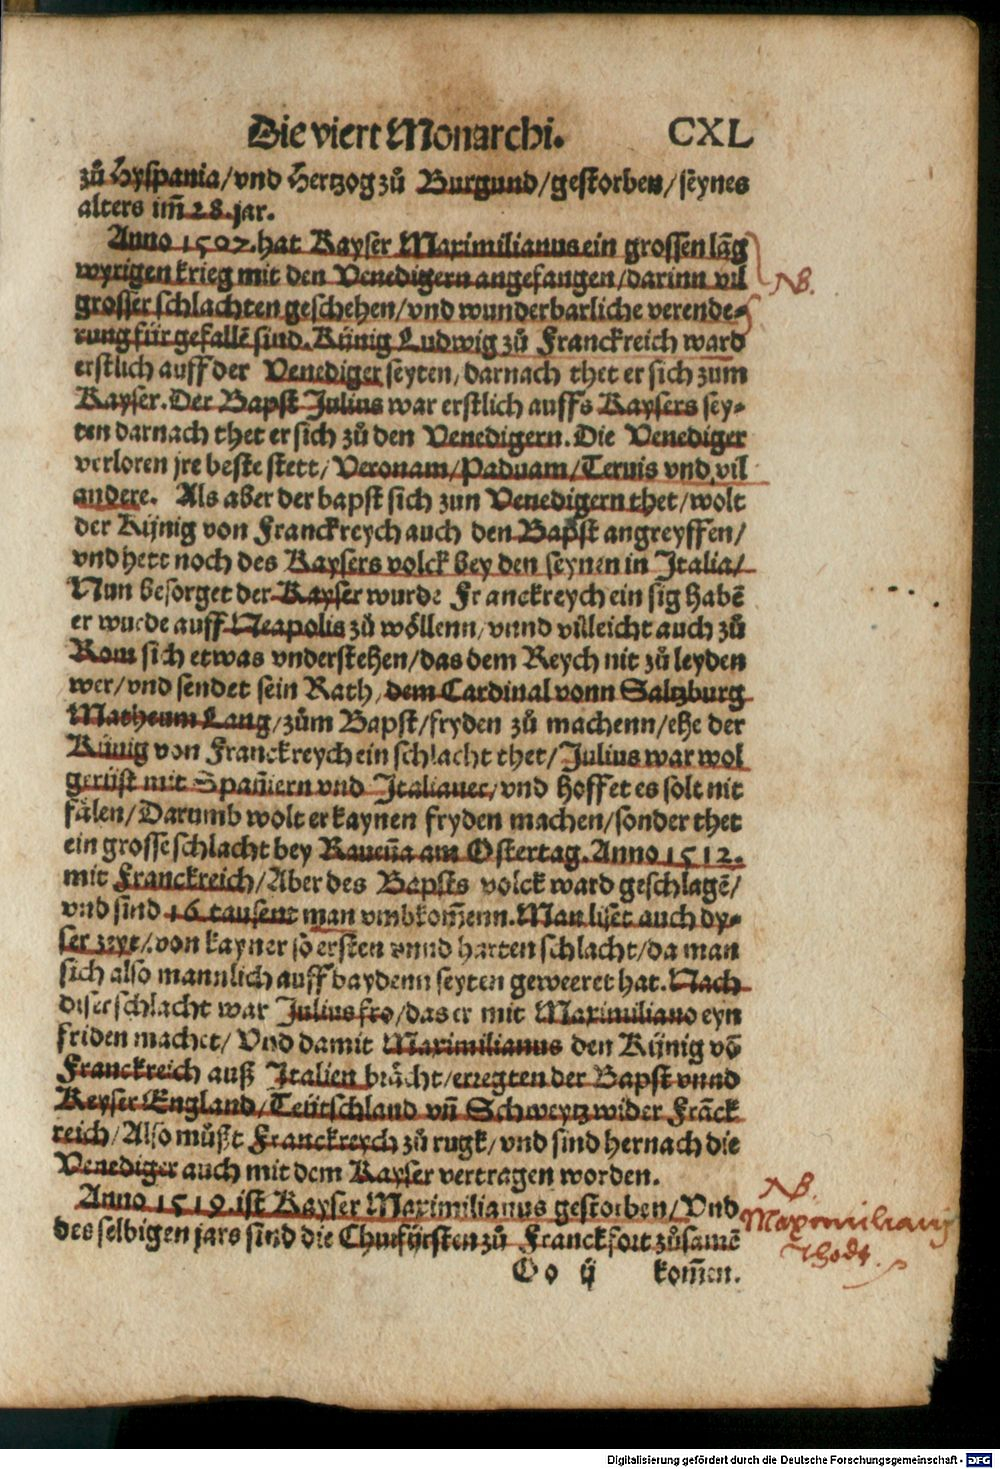 Die viert Monarchi. CXL
zů Hyspania/vnd Hertzog zů Burgund/gestorben/seynes
alters im̃ 28. jar.
Anno 1507. hat Kayser Maximilianus ein grossen lãg
wyrigen krieg mit den Venedigern angefangen/darinn vil
NB.
grosser schlachten geschehen/vnd wunderbarliche verende⸗
rung für gefallẽ sind. Künig Ludwig zů Franckreich ward
erstlich auff der Venediger seyten/darnach thet er sich zum
Kayser. Der Bapst Julius war erstlich auffs Kaysers sey⸗
ten darnach thet er sich zů den Venedigern. Die Venediger
verloren jre beste stett/Veronam/Paduam/Teruis vnd vil
andere. Als aber der bapst sich zun Venedigern thet/wolt
der Künig von Franckreych auch den Bapst angreyffen/
vnd hett noch des Kaysers volck bey den seynen in Italia/
Nun besorget der Kayser wurde Franckreych ein sig habẽ
er wurde auff Neapolis zů wöllenn/vnnd villeicht auch zů
Rom sich etwas vnderstehen/das dem Reych nit zů leyden
wer/vnd sendet sein Rath/dem Cardinal vonn Saltzburg
Matheum Lang/zům Bapst/fryden zů machenn/ehe der
Künig von Franckreych ein schlacht thet/Julius war wol
gerüst mit Spañiern vnd Italianer/vnd hoffet es solt nit
fälen/Darumb wolt er kaynen fryden machen/sonder thet
ein grosse schlacht bey Raueña am Ostertag. Anno 1512.
mit Franckreich/Aber des Bapsts volck ward geschlagẽ/
vnd sind 16 tausent man vmbkom̃enn. Man liset auch dy⸗
ser zeyt/von kayner so ersten vnnd harten schlacht/da man
sich also mannlich auff baydenn seyten geweeret hat. Nach
diser schlacht war Julius fro/das er mit Maximiliano eyn
friden machet/Vnd damit Maximilianus den Künig võ
Franckreich auß Italien brächt/erregten der Bapst vnnd
Keyser England/Teütschland vñ Schweytz wider Frãck
reich/Also můßt Franckreych zů rugk/vnd sind hernach die
Venediger auch mit dem Kayser vertragen worden.
Anno 1519. ist Kayser Maximilianus gestorben/Vnd
des selbigen jars sind die Churfürsten zů Franckfort zůsamẽ
NB.
Maximilianus
Thodt.
Oo ij kom̃en.
Digitalisierung gefördert durch die Deutsche Forschungsgemeinschaft - DFG